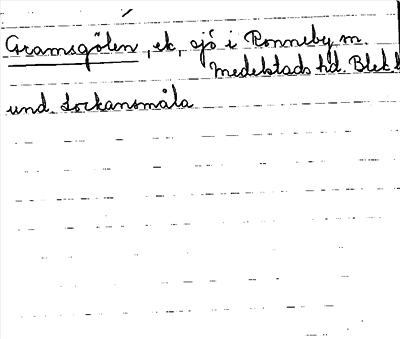 Gramsgölen, ek, sjö i Ronneby m.
Medelstads hd. Blek.l
und. Sockansmåla